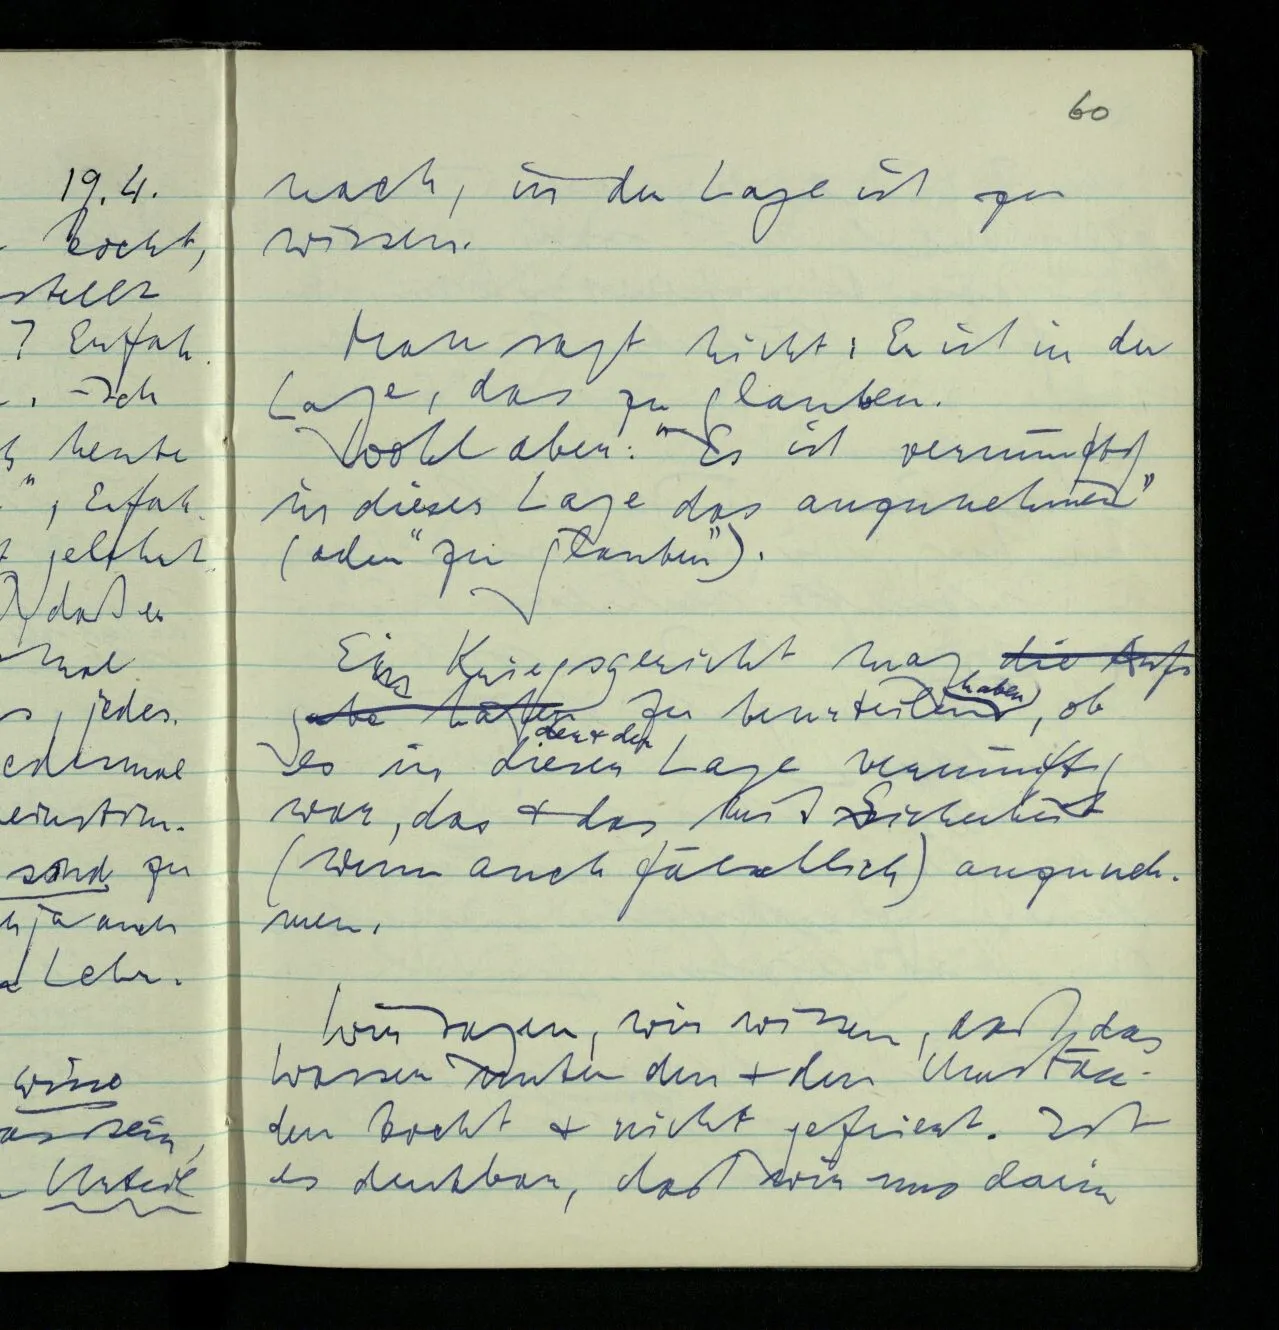 60
19.4.
kocht,
stellt
? Erfah
. Ich
heute
", Erfah.
gelehrt
daß er
mal
, jedes.
edesmal
einstim.
sind zu
ja auch
Lehr.
wisse
Urteil
nach, in der Lage ist zu
wissen.
Man sagt nicht: Er ist in der
Lage, das zu glauben.
Wohl aber: "Es ist vernünftig
in dieser Lage das anzunehmen"
(oder "zu glauben").
Ein Kriegsgericht mag die Aufg
abe haben zu beurteilen haben, ob
der & der
es in dieser Lage vernünftig
war, das & das mit Sicherheit
(wenn auch fälschlich) anzuneh-
men.
Wir sagen, wir wissen, daß das
Wasser unter den & den Umstän-
den kocht & nicht gefriert. Ist
es denkbar, daß wir uns darin